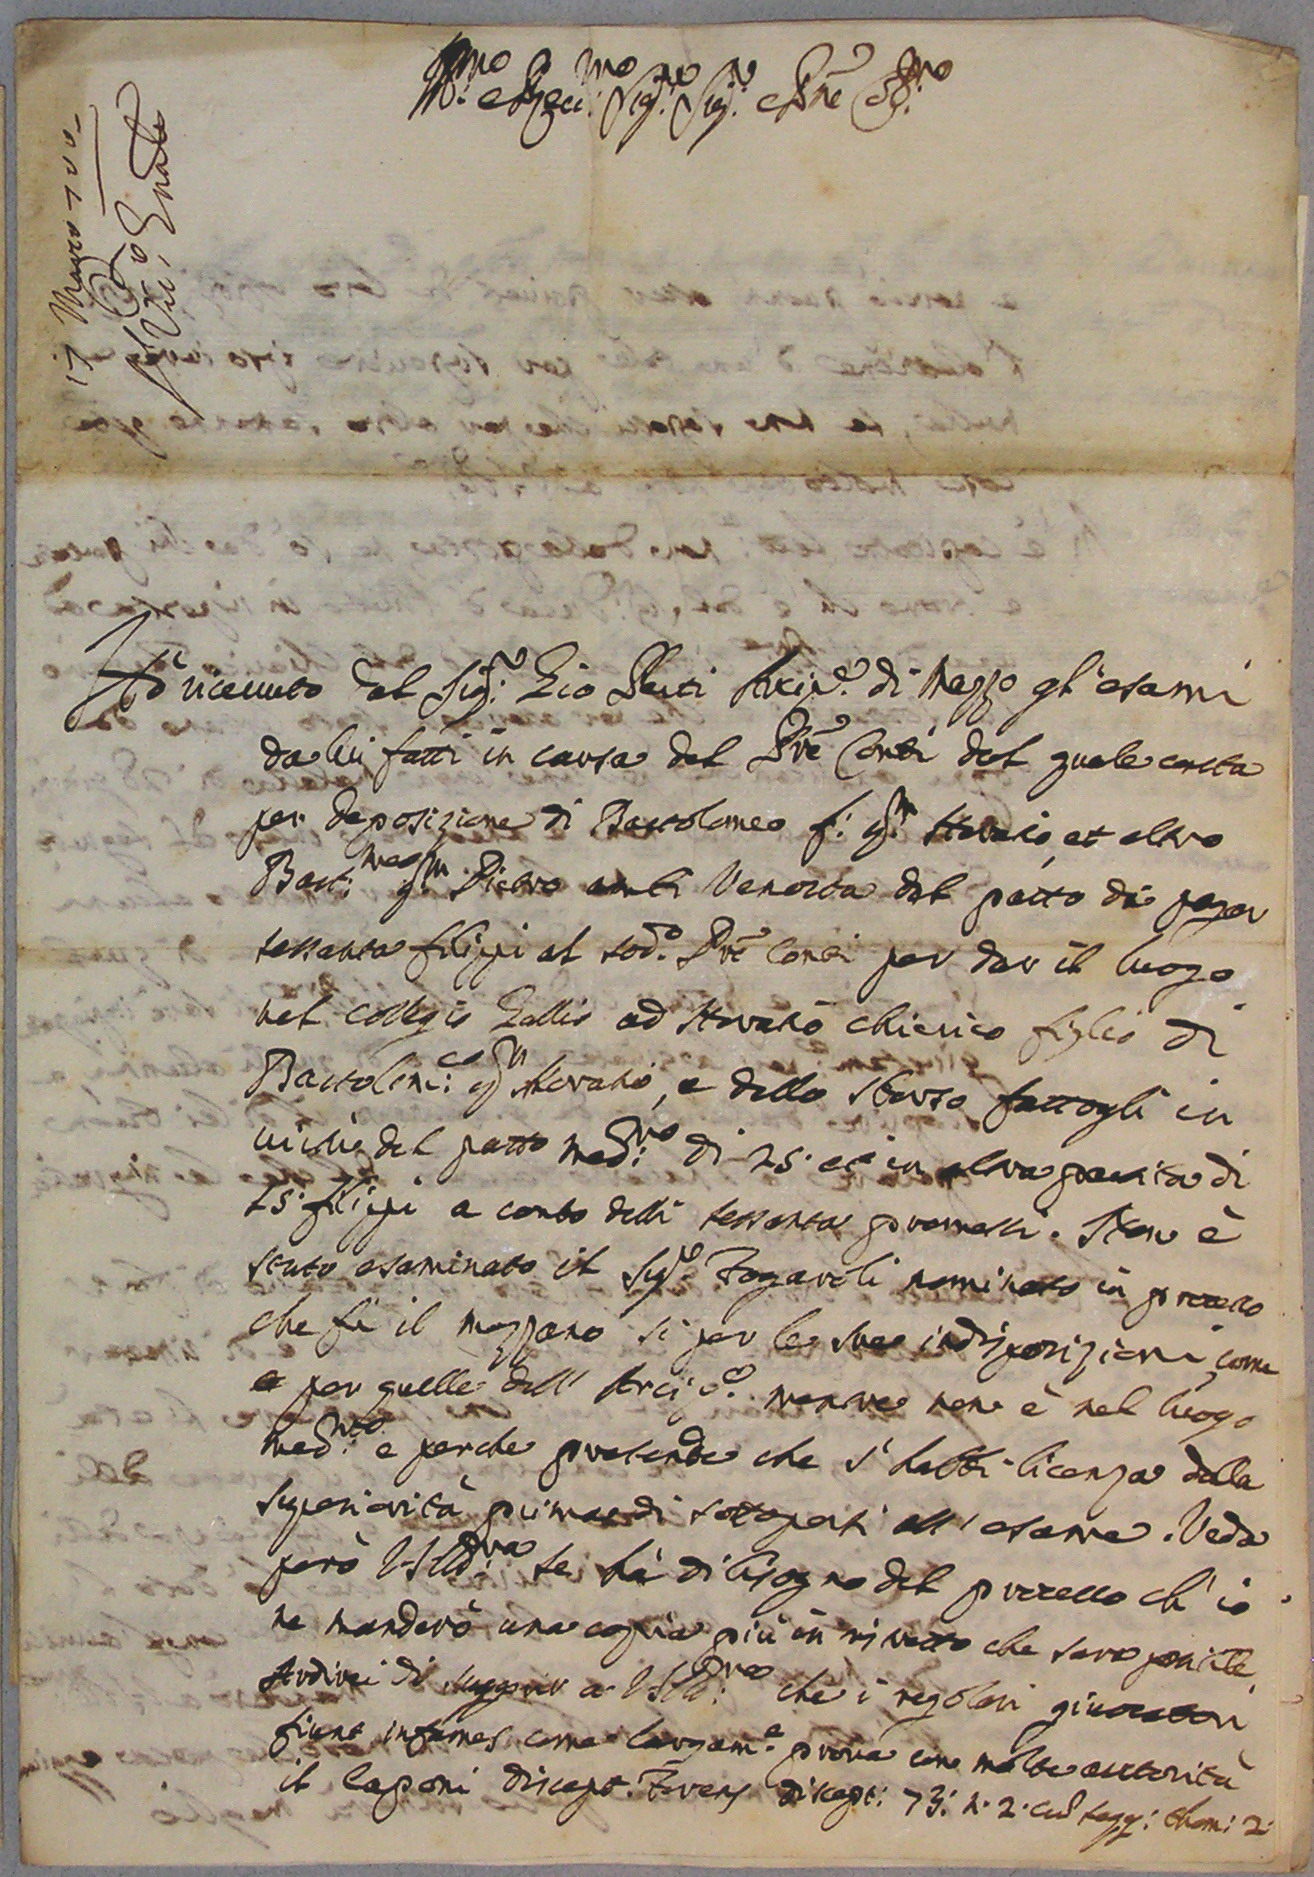 Ill.mo e R.mo Sig.r Sig.r Pne Col.mo
17 Marzo 700
Hò riceuuto dal Sig.r Zio Arcip.e di Mezzo gl'esami
da lui fatti in causa del Prè Conti del quale costa
per deposizione di Bartolomeo f. q.m Stevano, et altro
Bart.meo q.m Pietro ambi Venosta del patto di pagar
sessanta filippi al sod.o Prè Conti per dar il luogo
nel collegio Gallio ad Stevano chierico figlio di
Bartolom.co q.m Stevano, e dello sborso fattogli in
uirtù del patto med.mo di 25. et in altra partita di
25. filippi a conto delli sessanta promessi. Non è
stato esaminato il Sig.r Fogaroli nominato in processo
che fù il mezzano si per le sue indisposizioni, come
e per quelle dell'Arcip.e mentre non è nel luogo
med.mo e perche pretende che s'habbi licenza dalla
superiorità prima di sottoporsi all'esame. Veda
però V.S.Ill.ma se hà di bisogno del processo ch'io
ne manderò una copia più in ristretto che sarà possibile.
Ardirei di suggerir a V.S.Ill.ma che i regolari giuocatori
fiunt infames come largam.e proua con molte autorità
il Laponi discept. Forens discept: 73: n. 2. cum seqq: thom: 2